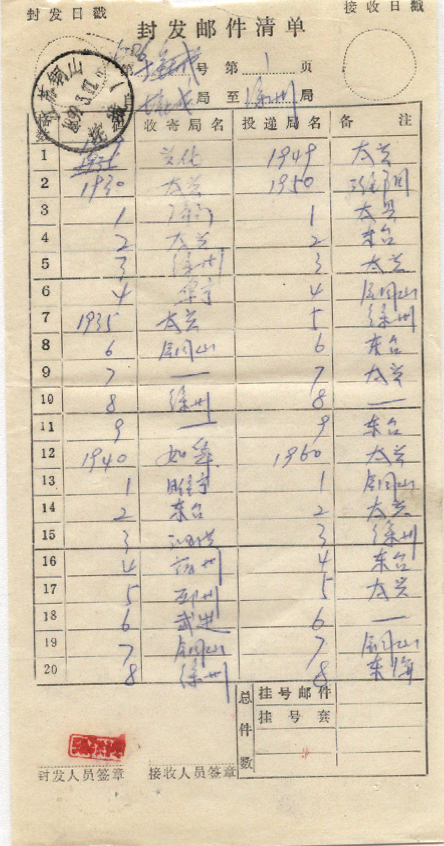 封发日戳 接收日戳
封发邮件清单
第 号 第 1 页
局 至 徐州 局
收寄局名 投递局名 备注
1 兴化 1949 太兴
2 1930 太兴 1950
3 1 1 太兴
4 2 太兴 2 东台
5 3 徐州 3 太兴
6 4 4 铜山
7 1935 太兴 5 徐州
8 6 铜山 6 东台
9 7 — 7 太兴
10 8 徐州 8 —
11 9 — 9 东台
12 1940 如皋 1960 太兴
13 1 睢宁 1 铜山
14 2 东台 2 太兴
15 3 3 徐州
16 4 苏州 4 东台
17 5 邳州 5 太兴
18 6 武进 6 —
19 7 铜山 7 铜山
20 8 徐州 8 东海
总件数 挂号邮件
挂号套
封发人员签章 接收人员签章